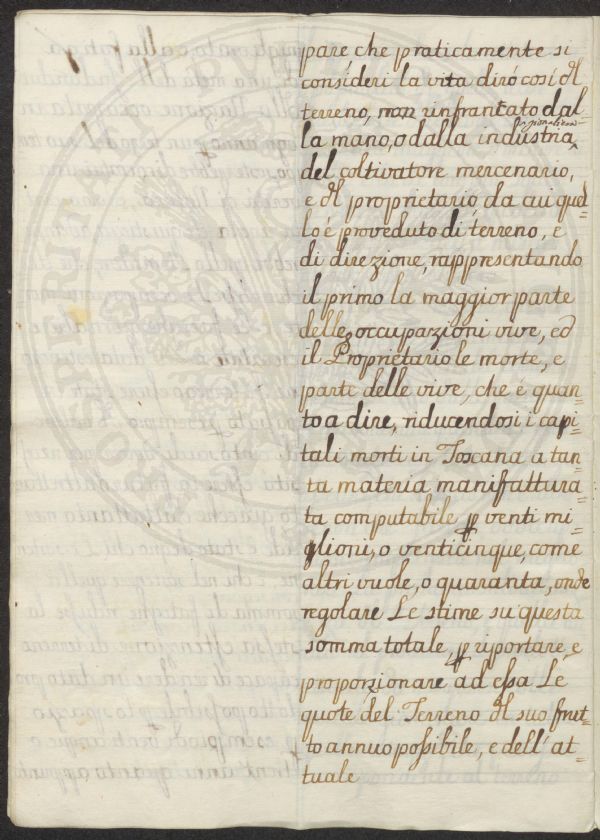 pare che praticamente si
consideri la vita dirò così dl
terreno, non rinfrancato dal=
la mano, o dalla industria
del coltivatore mercenario,
e dl proprietario, da cui quel=
lo è proveduto di terreno, e
di direzione, rappresentando
il primo la maggior parte
delle occupazioni vive, ed
il Proprietario le morte, e
parte delle vive, che è quan=
to a dire, riducendosi i capi=
tali morti in Toscana a tan=
ta materia manifattura=
ta computabile p venti mi=
glioni, o venticinque, come
altri vuole, o quaranta, onde
regolare Le stime su questa
somma totale, p riportare, e
proporzionare ad essa Le
quote del Terreno dl suo frut=
to annuo possibile, e dell' at=
tuale